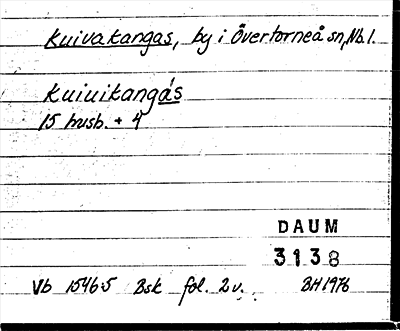 Kuivakangas, by i Övertorneå sn, Nb. l.
Kuiuikangås
15 hush. + 4
DAUM
3138
Vb 1546:5 Bsk fol. 2v. BH 1976